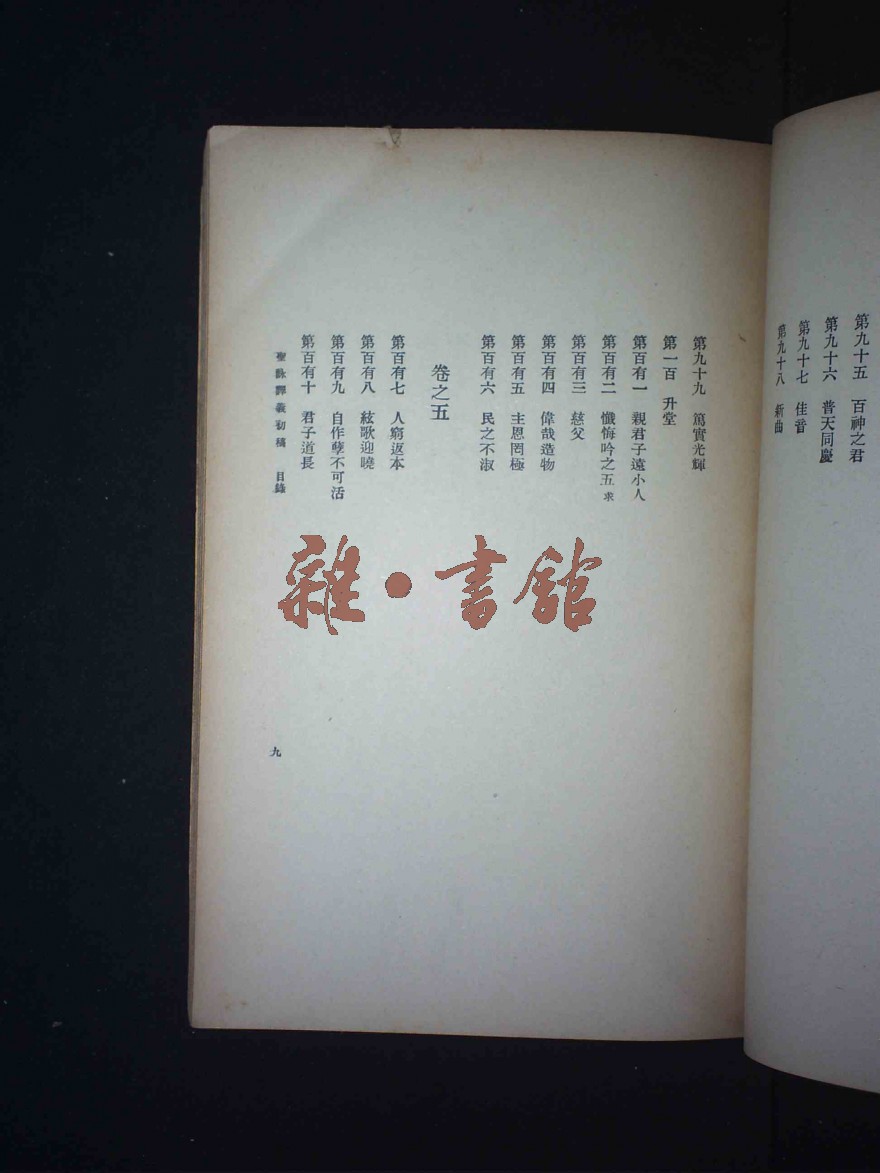 第九十五　百神之君
第九十六　普天同慶
第九十七　佳音
第九十八　新曲
第九十九　篤實光輝
第一百　升堂
第百有一　親君子遠小人
第百有二　懺悔吟之五 求
第百有三　慈父
第百有四　偉哉造物
第百有五　主恩罔極
第百有六　民之不淑
卷之五
第百有七　人窮返本
第百有八　絃歌迎曉
第百有九　自作孽不可活
第百有十　君子道長
聖詠譯義初稿　目錄
九
雜·書館